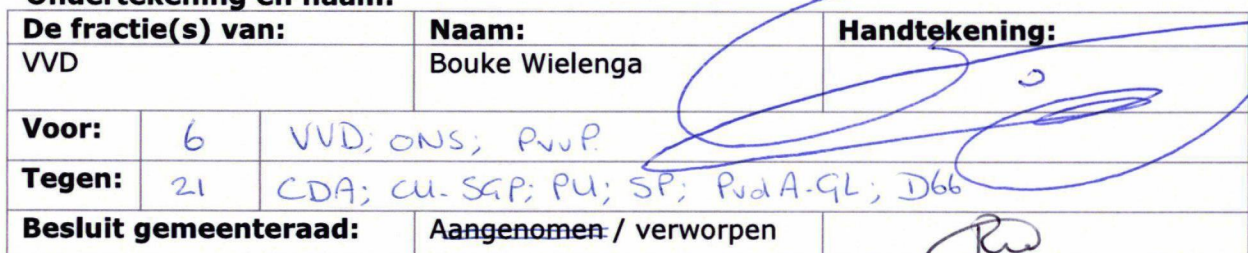 Ondertekening en naam:
De fractie(s) van: Naam: Handtekening:
VVD Bouke Wielenga
Voor: 6 VVD; ONS; PvvP.
Tegen: 21 CDA; CU-SGP; PU; SP; PvdA-GL; D66
Besluit gemeenteraad: Aangenomen / verworpen